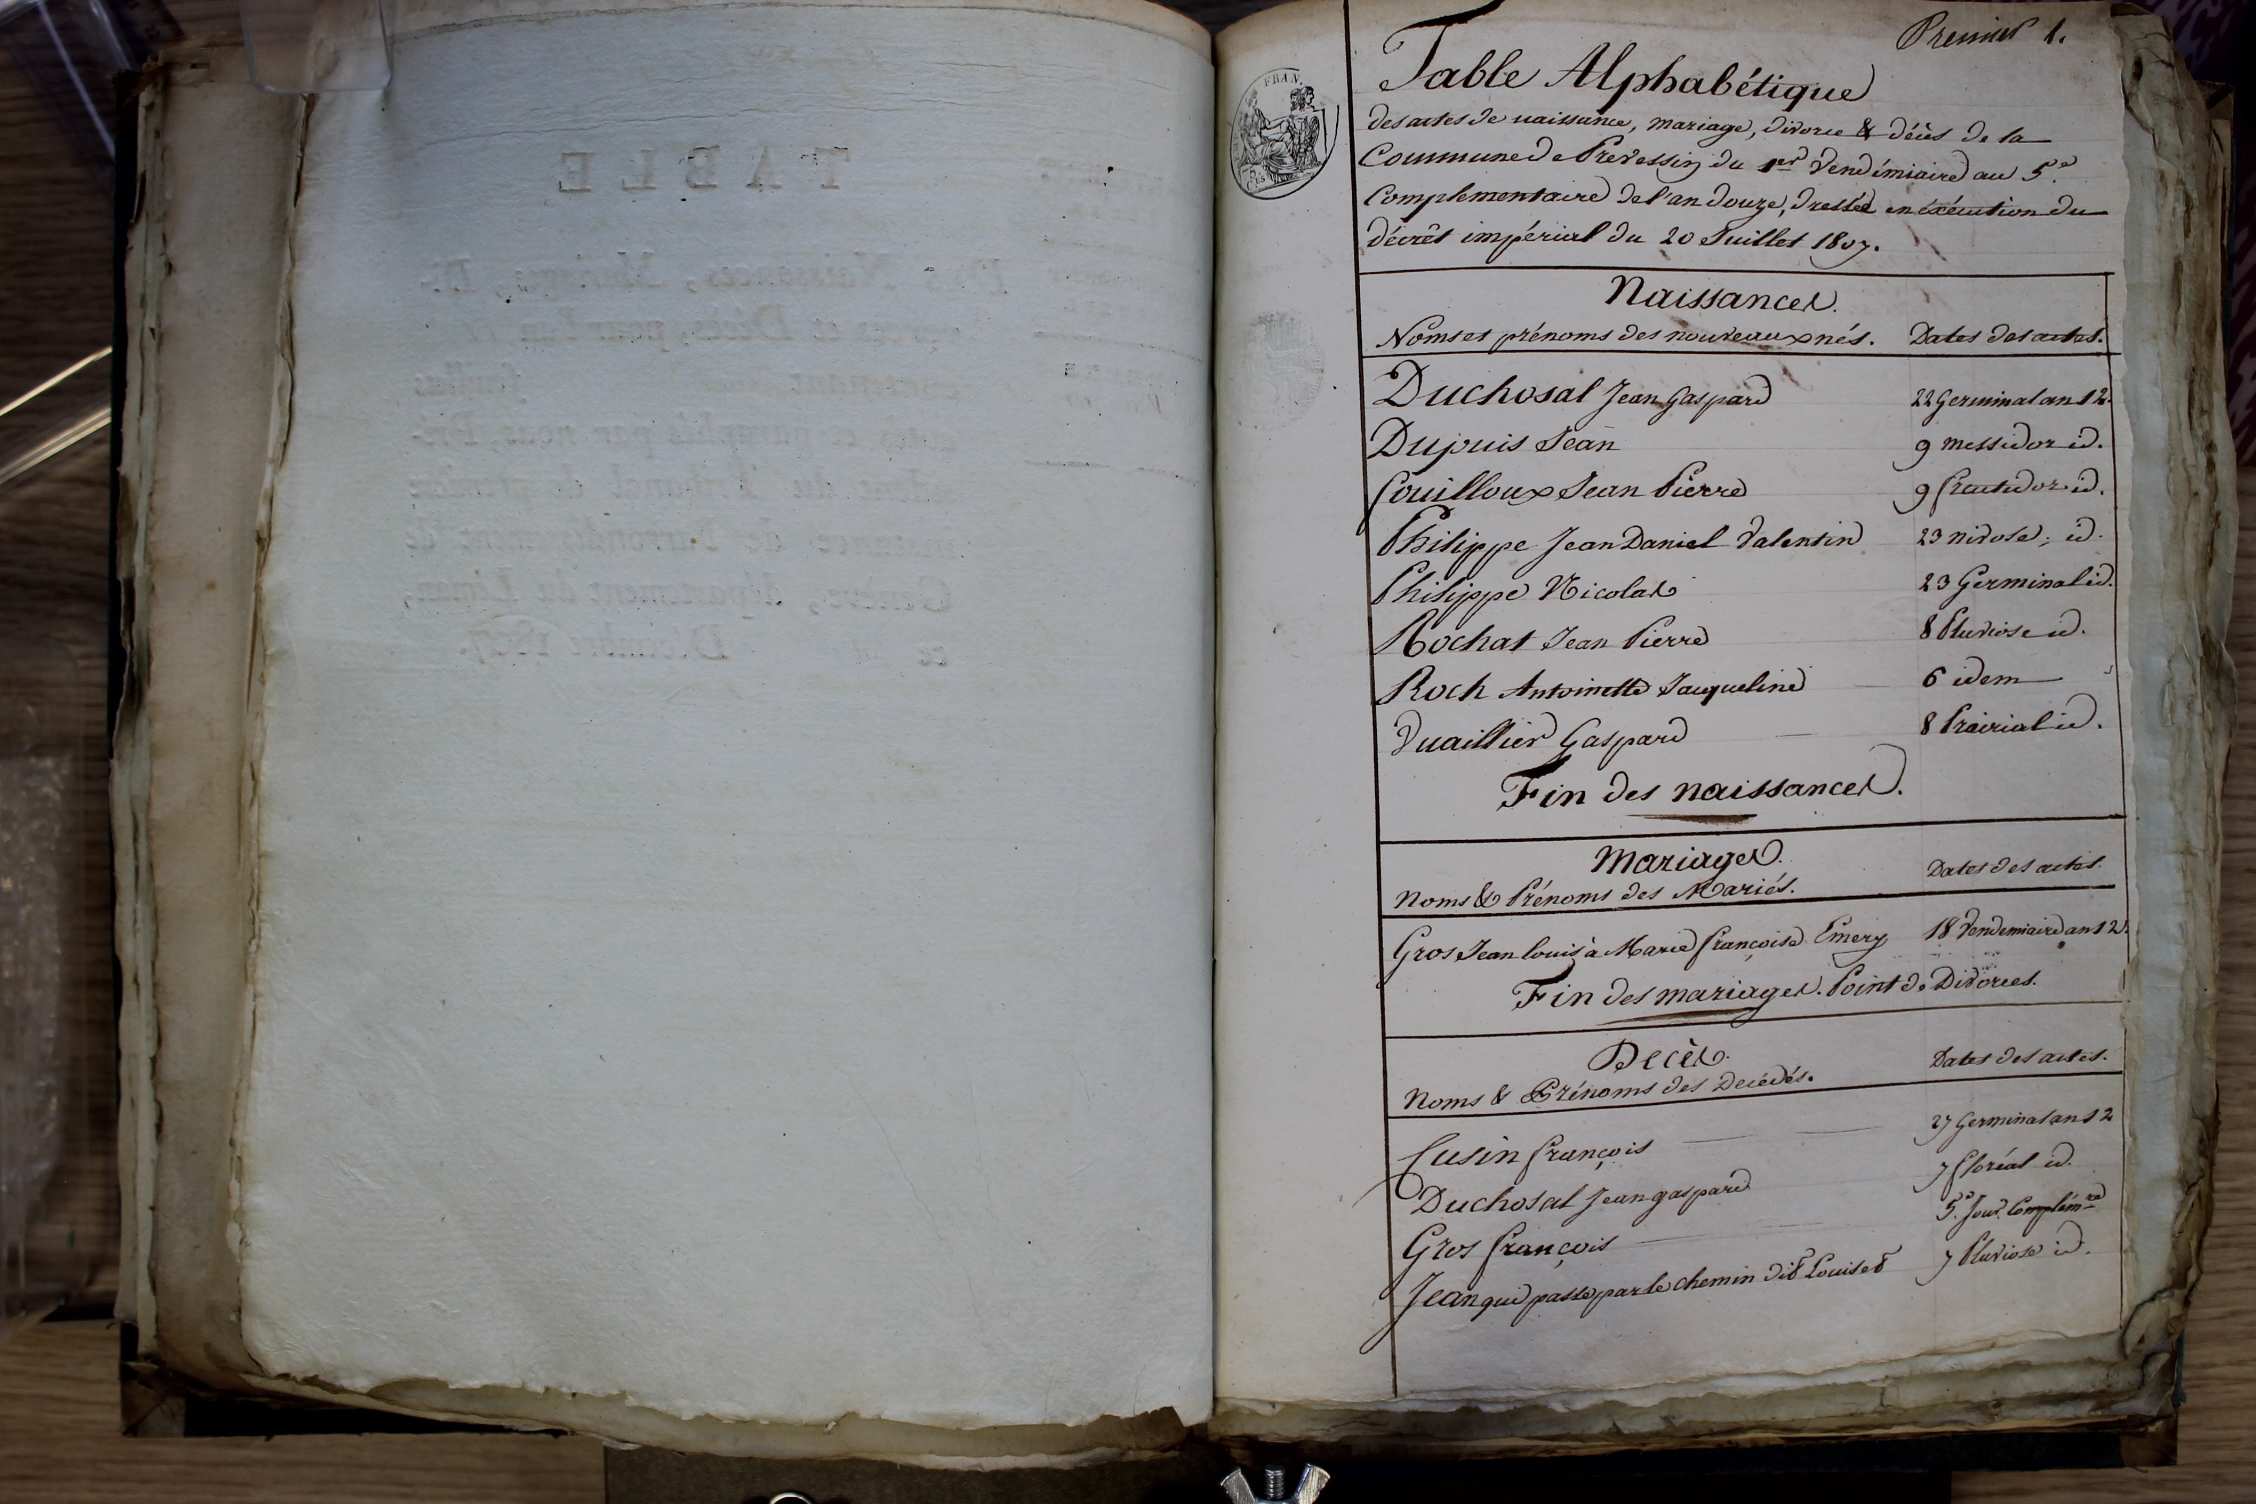 Premier 1.
Table Alphabétique
des actes de naissance, mariage, divorce & décès de la
Commune de Prevessin du 1er Vendémiaire au 5e
Complementaire de l'an douze, dressée en éxécution du
décrêt impérial du 20 Juillet 1807.
FRAN.
Naissances.
Noms et prénoms des nouveaux nés. Dates des actes.
Duchosal Jean Gaspard 22 Germinal an 12.
Dupuis Jean 9 messidor id.
Fouilloux Jean Pierre 9 fructidor id.
Philippe Jean Daniel Valentin 23 nivose, id.
Philippe Nicolas 23 Germinal id.
Rochat Jean Pierre 8 Pluviose id.
Roch Antoinette Jacqueline 6 idem
Vuaillier Gaspard 8 Prairial id.
Fin des naissances.
Mariages.
Noms & Prénoms des Mariés. Dates des actes.
Gros Jean louis à Marie françoise Emery 18 Vendemiaire an 12.
Fin des mariages. Point de Divorces.
Decès.
Noms & Prénoms des Decédés. Dates des actes.
Cusin françois 27 Germinal an 12
Duchosal Jean gaspard 7 floréal id.
Gros françois 5e Jour Complémre
Jean qui passe par le chemin dit Louiset 7 Pluviose id.
TABLE
Naissances, Mariages, Di-
et Décès, pour l'an
feuillets
cotés et paraphés par nous, Pré-
Tribunal de première
l'arrondissement de
Genève, département du Léman,
ce Décembre 1807.